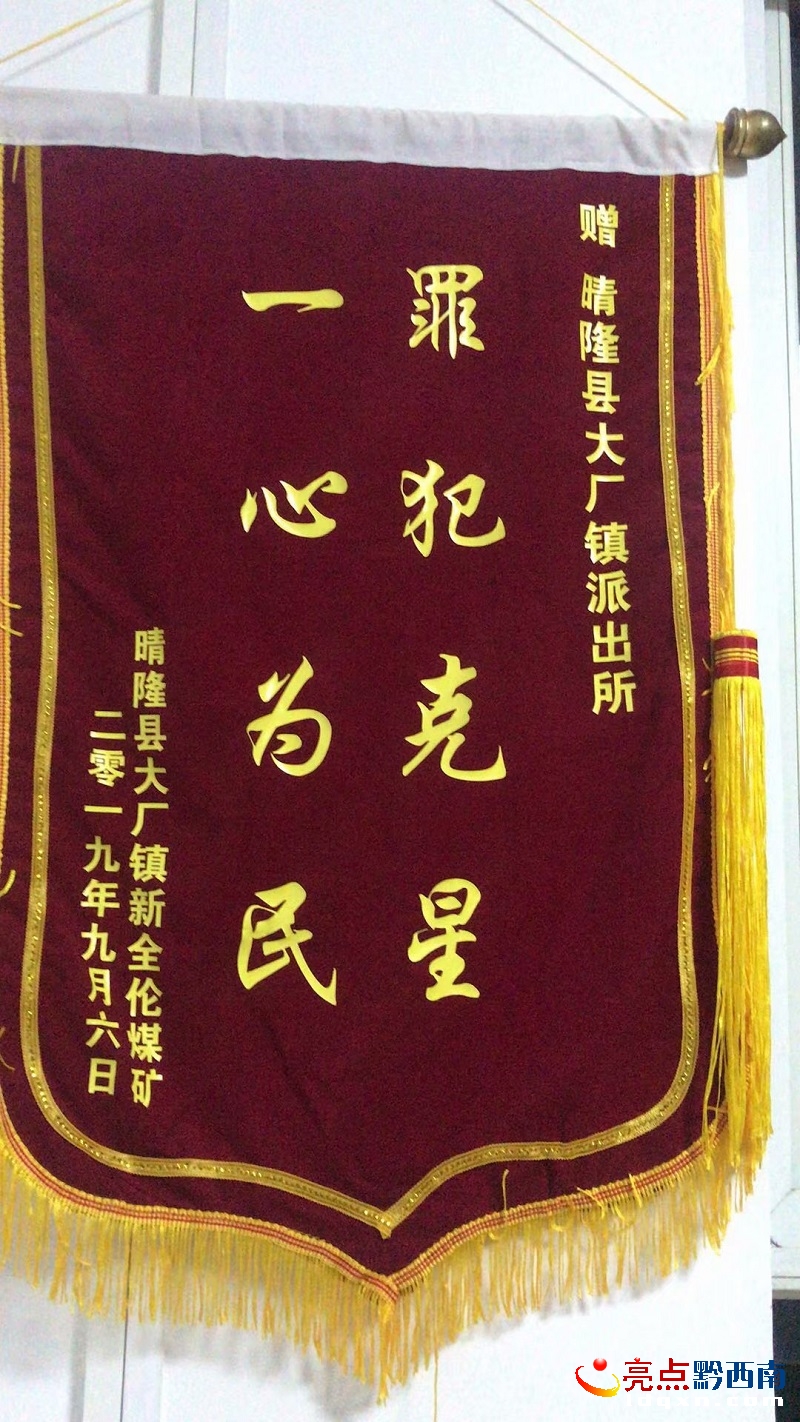 赠 晴隆县大厂镇派出所
罪犯克星
一心为民
晴隆县大厂镇新全伦煤矿
二零一九年九月六日
亮点黔西南